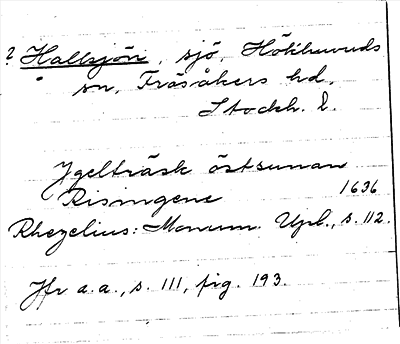 ? Hallsjön, sjö, Hökhuvuds
sn, Frösåkers hd,
Stockh. l.
Ygelträsk östsunnan
Risingene 1636
Rhezelius: Monum. Upl., s. 112.
Jfr a.a., s. 111, fig. 193.